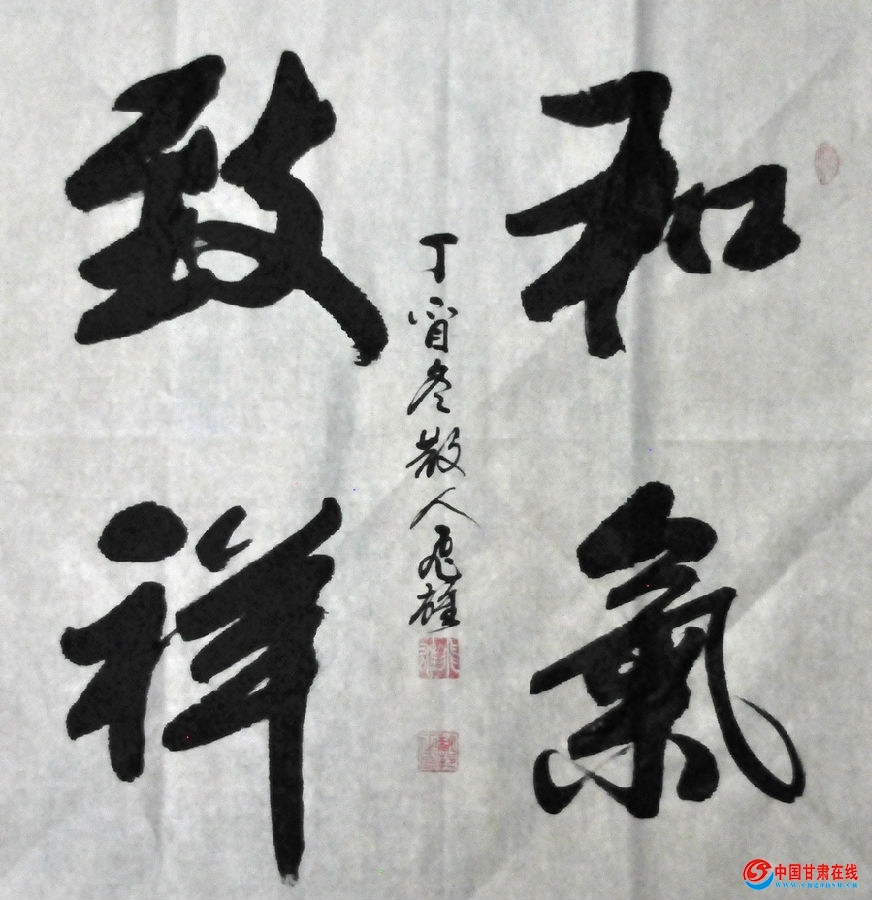 和氣
致祥
丁酉冬散人飛雄
中国甘肃在线
www.cngansu.cn